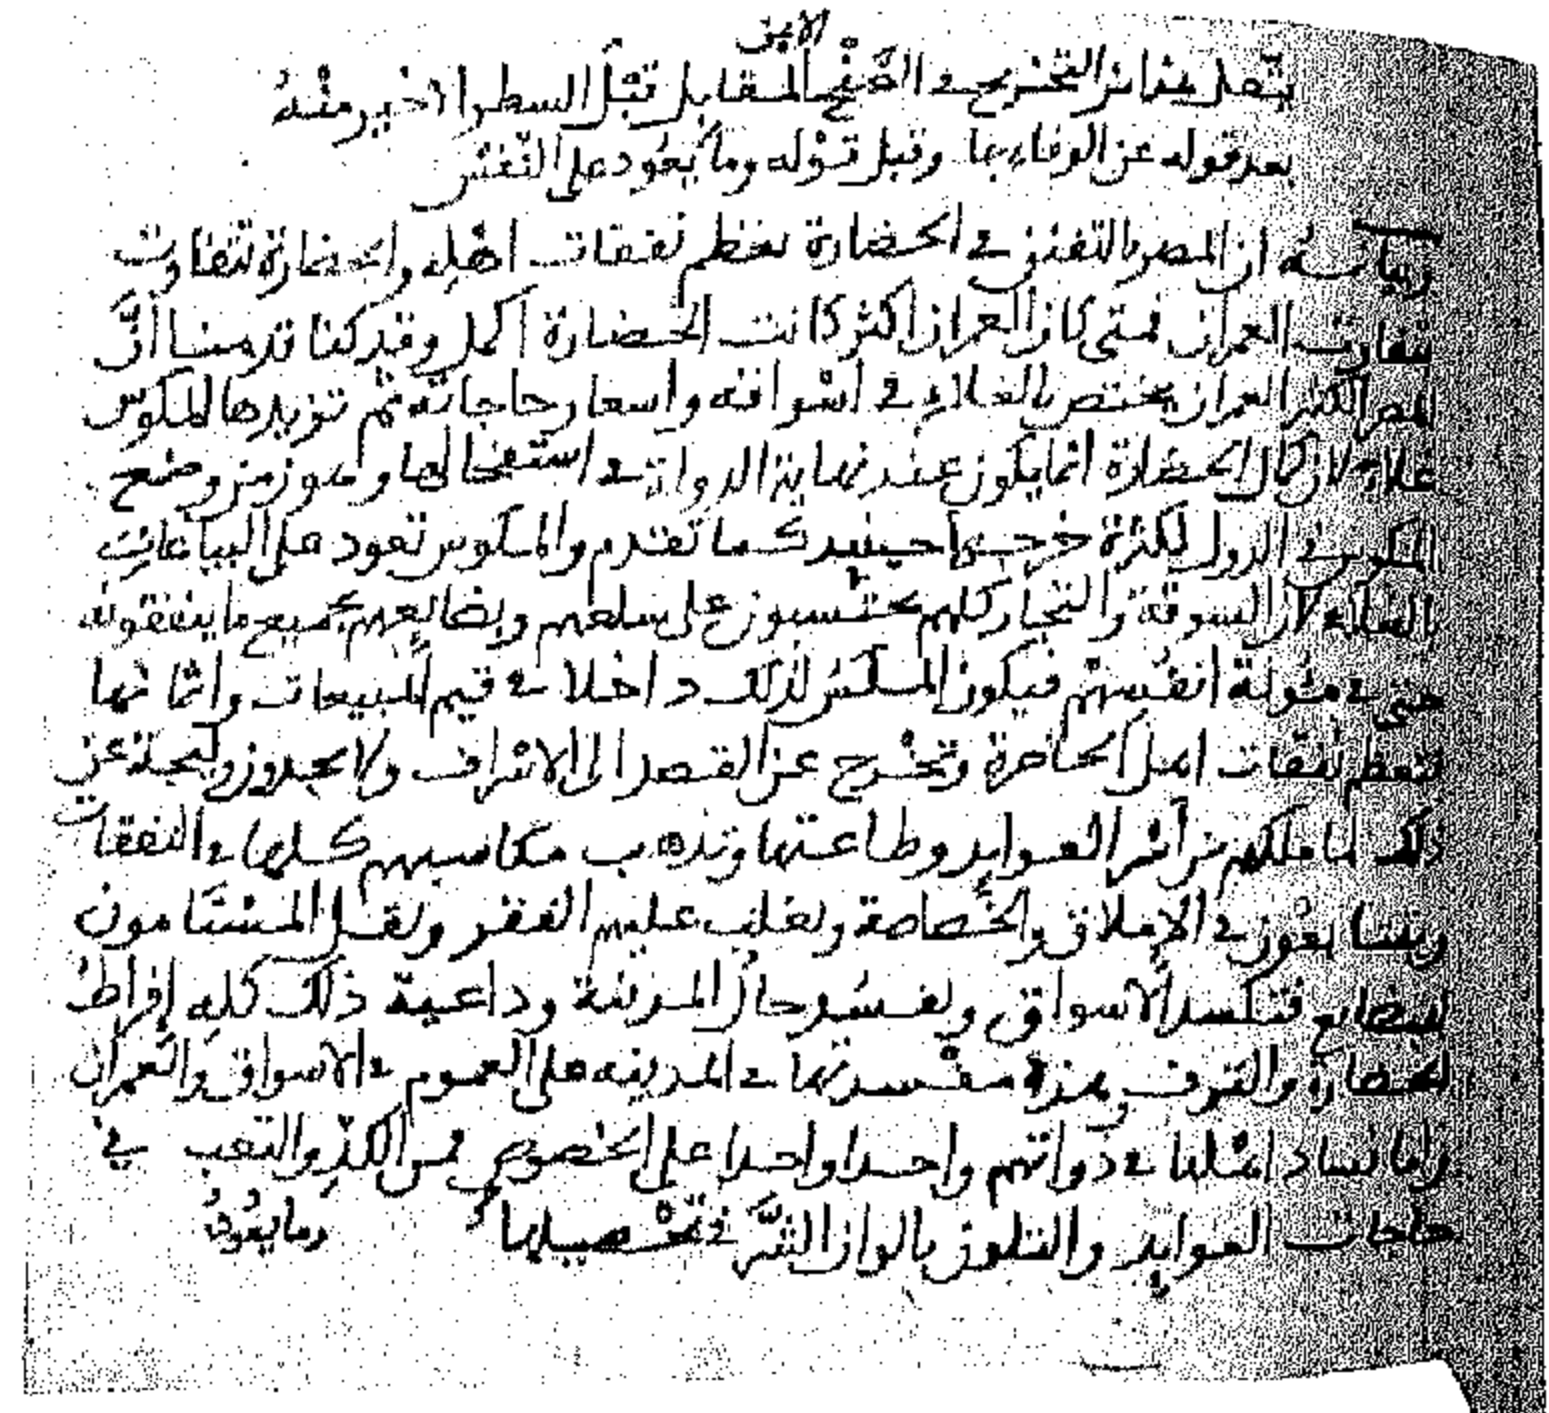 الايمن
يتصل هذا من التخريج في الصَّفْح المقابل قبل السطر الاخير منْهُ
بعد قوله عن الوفاء بها وقبل قوْله وما يَعُود على النّفْس
وبيانه ان المصر بالتفنن في الحضارة تعظم نفقات اهْلِه والحضارة تتفاوت
بتفاوت العمران فمتى كان العمران اكثر كانت الحضارة اكمل وقد كنا قدمنا انَّ
المصر الكثير العمران يختص بالغلاء في اسْواقه واسعار حاجاته ثم تزيدها المكوس
غلاء لان كمال الحضارة انما يكون عند نهاية الدولة في استفحالها وهو زمن وضع
المكوس في الدول لكثرة خرجها حينيد كما تقدم والمكوس تعود على البياعات
بالغلاء لان السوقة والتجار كلهم يحتسبون على سلعهم وبضايعهم بجميع ما ينفقونه
حتى في مئونة انفُسهمْ فيكون المكس لذلك داخلا في قيم المبيعات واثمانها
فتعظم نفقات اهل الحاضرة وتخْرج عن القصد الى الاسْراف ولا يجدون وليجة عن
ذلك لما ملكهم من أثر العوايد وطاعتها وتذهب مكاسبهم كلها في النفقات
ويتتابعُون في الإملاق والخَصاصة ويغلب عليهم الفقر ويقل المسْتامون
للبضايع فتكسد الاسواق ويفسُد حال المدينة وداعية ذلك كلهِ إفراطُ
الحضارة والترف وهذه مفْسدتها في المدينه على العموم في الاسواق والعمران
واما فساد اهْلها في ذواتهم واحدا واحدا على الخصوص فمن الكدِّ والتعب في
حاجات العوايد والتلون بالوان الشَّر في تحْصيلها وما يعُودُ